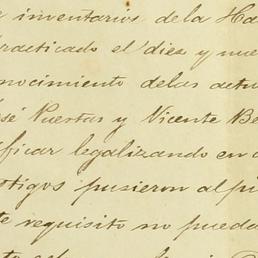 e inventarios de la Ha
practicado el diez y nue
nocimiento de las actu
sé Puertas y Vicente Be
ificar legalizando en
stigos pusieron al pi
te requisito no pueda